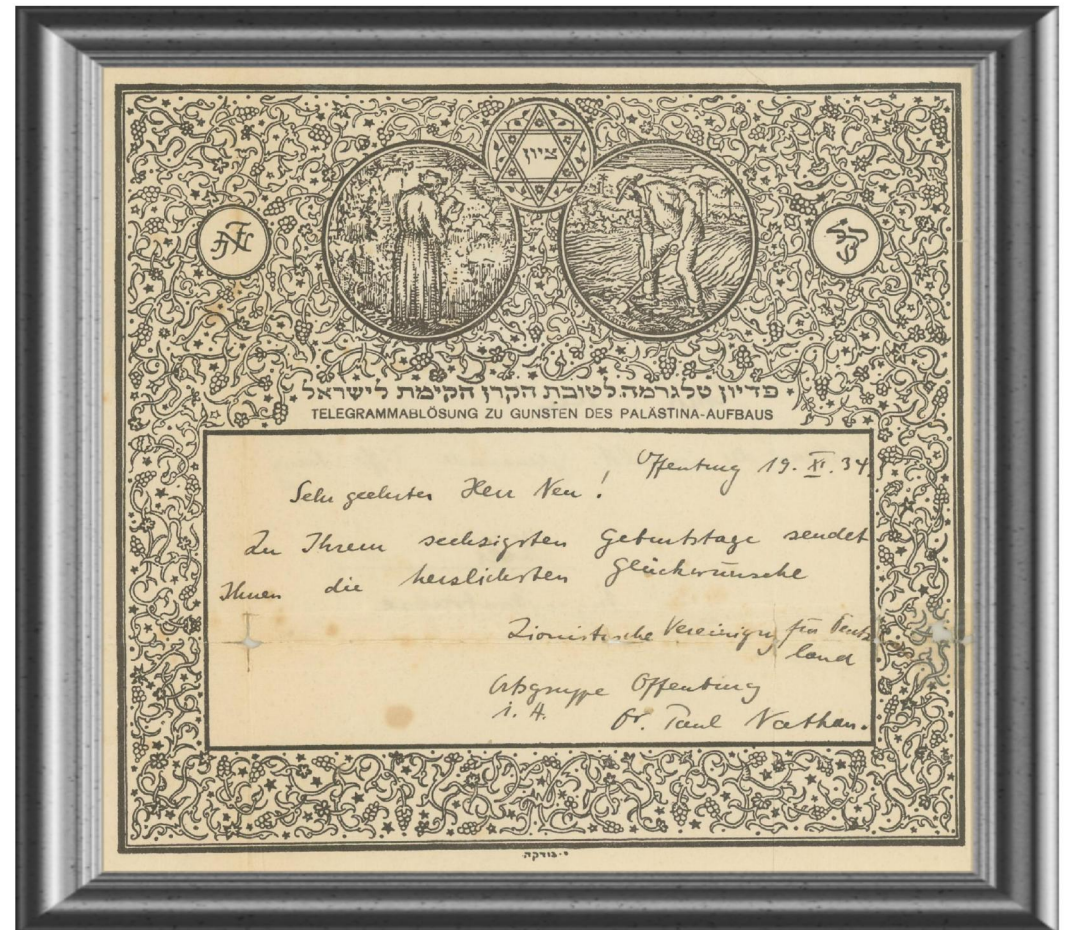 ציון
פדיון טלגרמה לטובת הקרן הקימת לישראל
TELEGRAMMABLÖSUNG ZU GUNSTEN DES PALÄSTINA-AUFBAUS
Offenburg 19. XI. 34.
Sehr geehrter Herr Neu!
Zu Ihrem sechzigsten Geburtstage sendet
Ihnen die herzlichsten Glückwünsche
Zionistische Vereinigung für Deutsch
land
Ortsgruppe Offenburg
i. A. Dr. Paul Nathan.